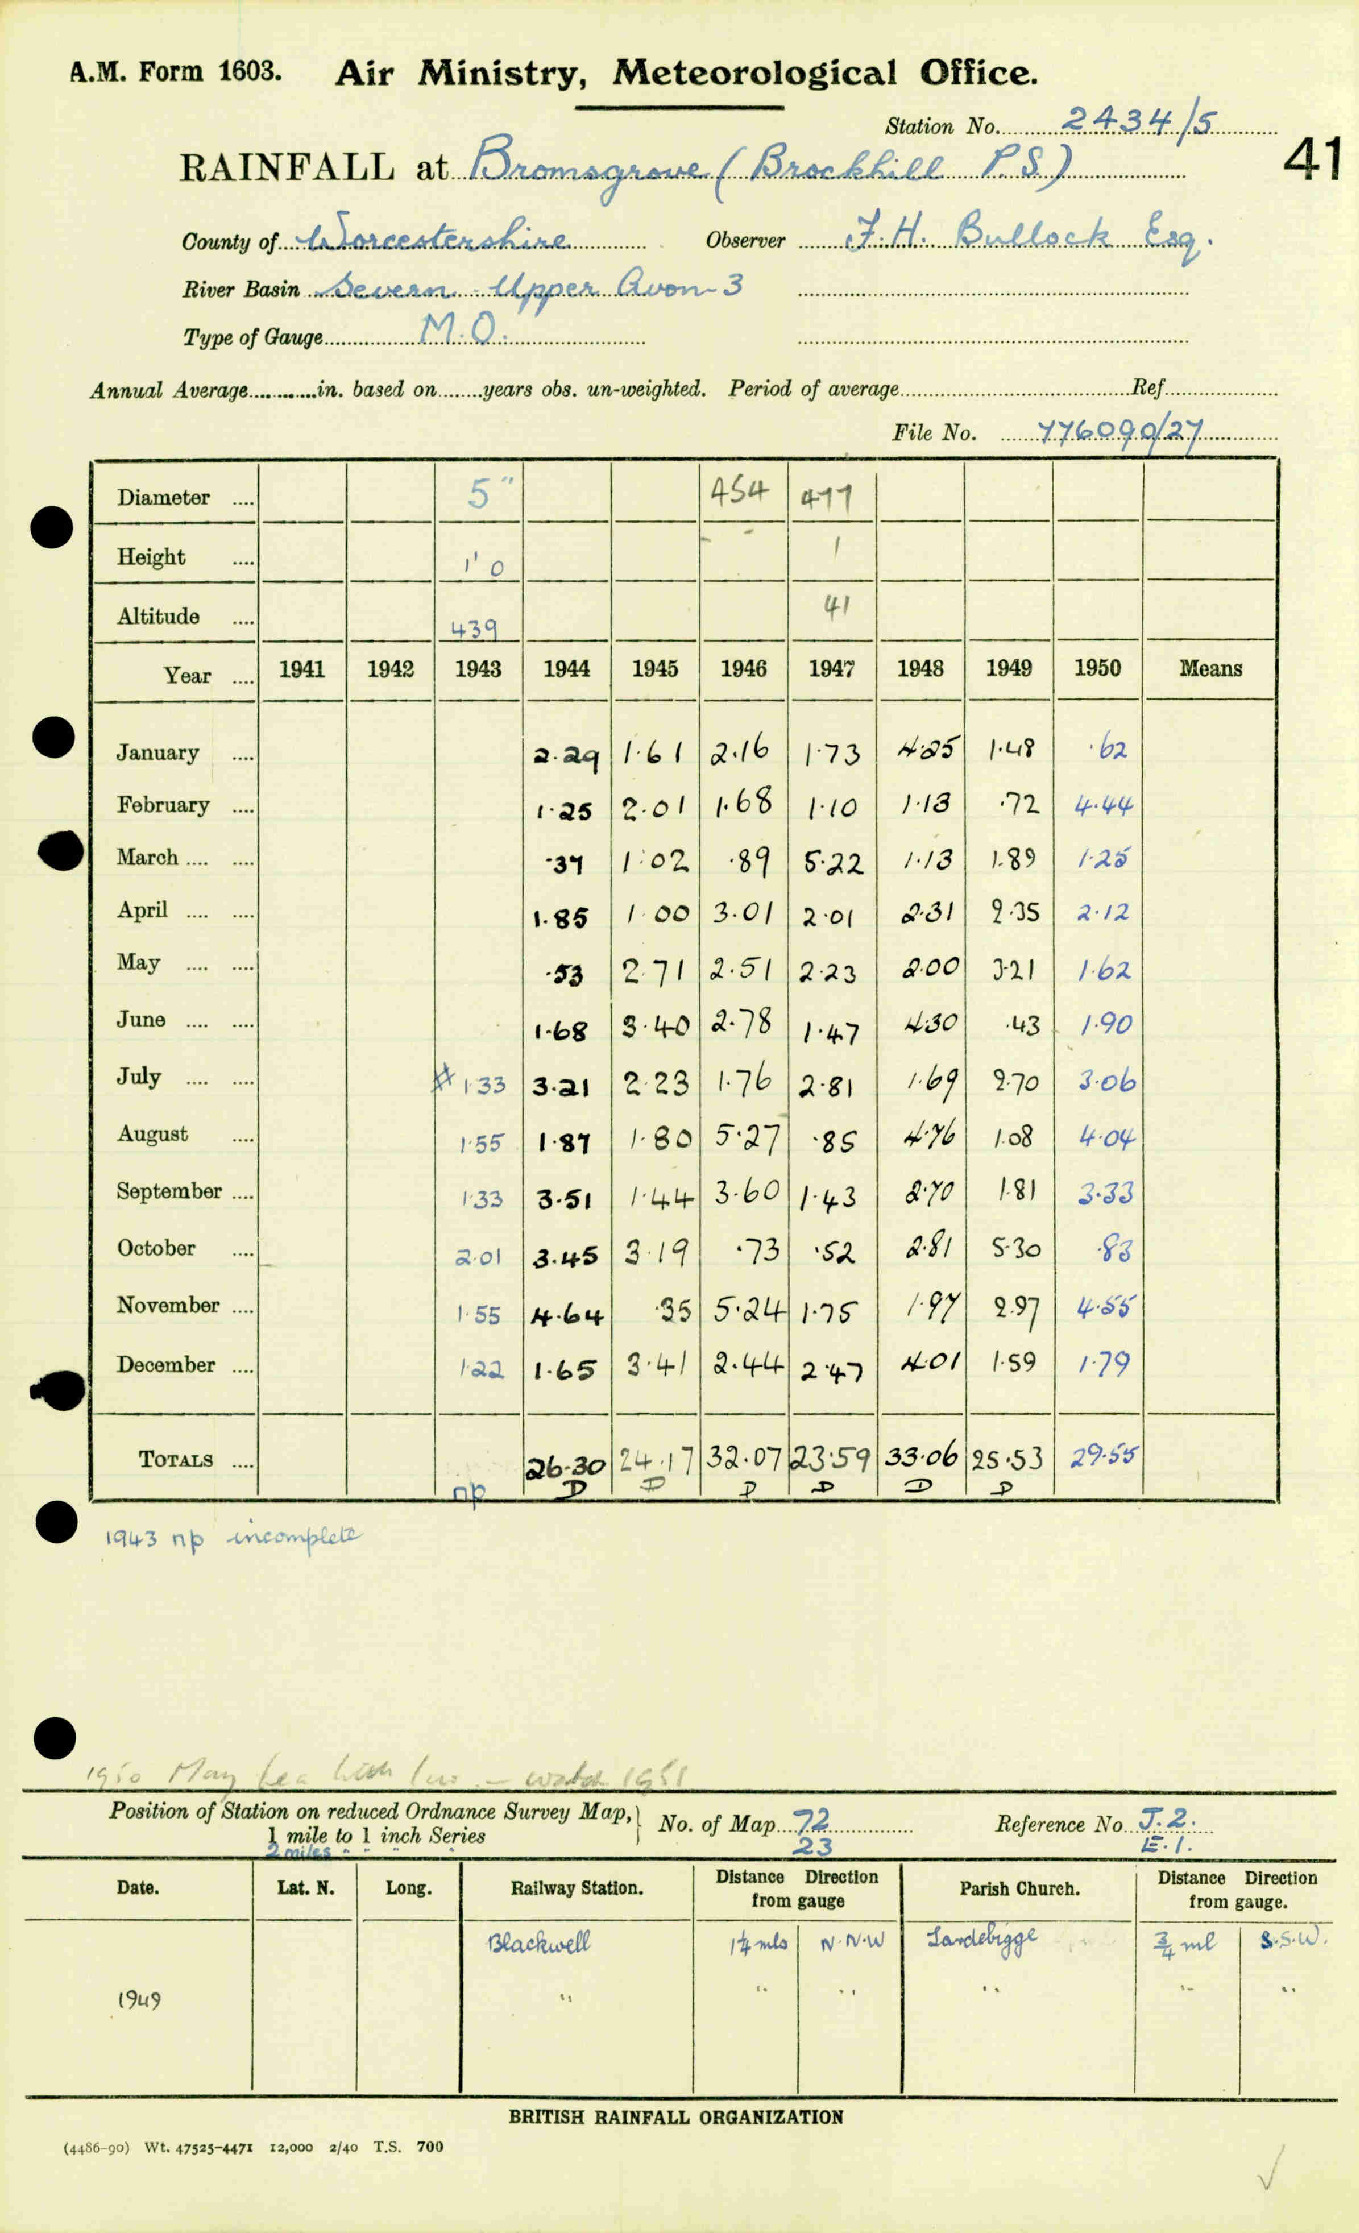 A.M. Form 1603. Air Ministry, Meteorological Office.
Station No. 2434/5
41
RAINFALL at Bromsgrove (Brockhill P.S)
County of Worcestershire Observer F.H. Bullock Esq.
River Basin Severn - Upper Avon-3
Type of Gauge M.O.
Annual Average in. based on years obs. un-weighted. Period of average Ref
File No. 776090/27
Diameter .... 5" 454 477
Height .... 1' 0 1
Altitude .... 439 41
Year .... 1941 1942 1943 1944 1945 1946 1947 1948 1949 1950 Means
January .... 2.29 1.61 2.16 1.73 4.25 1.48 .62
February .... 1.25 2.01 1.68 1.10 1.13 .72 4.44
March .... .... .37 1.02 .89 5.22 1.13 1.89 1.25
April .... .... 1.85 1.00 3.01 2.01 2.31 2.35 2.12
May .... .... .53 2.71 2.51 2.23 2.00 3.21 1.62
June .... .... 1.68 3.40 2.78 1.47 4.30 .43 1.90
July .... .... # 1.33 3.21 2.23 1.76 2.81 1.69 2.70 3.06
August .... 1.55 1.87 1.80 5.27 .85 4.76 1.08 4.04
September .... 1.33 3.51 1.44 3.60 1.43 2.70 1.81 3.33
October .... 2.01 3.45 3.19 .73 .52 2.81 5.30 .83
November .... 1.55 4.64 .35 5.24 1.75 1.97 2.97 4.55
December .... 1.22 1.65 3.41 2.44 2.47 4.01 1.59 1.79
TOTALS .... 26.30 24.17 32.07 23.59 33.06 25.53 29.55
np D D D D D D
1943 np incomplete
1950 May 1951
Position of Station on reduced Ordnance Survey Map, No. of Map 72 Reference No J.2.
1 mile to 1 inch Series
2 miles " " " " 23 E.1.
Date. Lat. N. Long. Railway Station. Distance Direction from gauge Parish Church. Distance Direction from gauge.
Blackwell 1¼ mls N.N.W Tardebigge ¾ ml S.S.W.
1949 " " " " " "
BRITISH RAINFALL ORGANIZATION
(4486-90) Wt. 47525-4471 12,000 2/40 T.S. 700